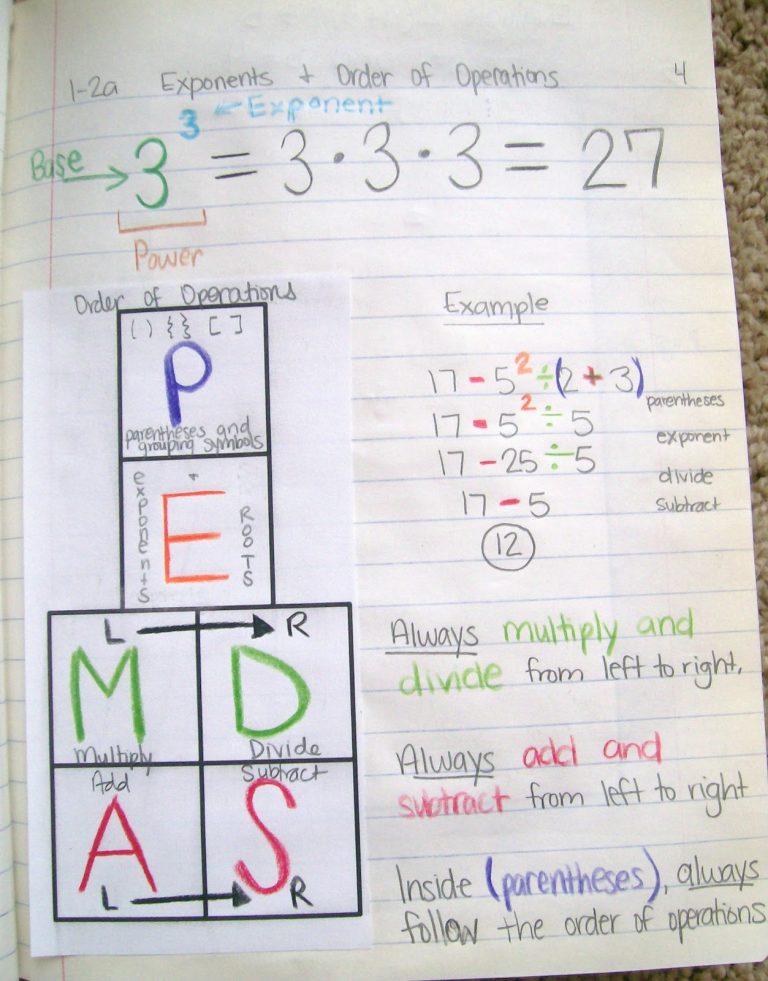 1-2a Exponents + Order of Operations 4
3 ← Exponent
Base → 3 = 3 · 3 · 3 = 27
Power
Order of Operations
( ) { } [ ]
P
parentheses and
grouping symbols
exponents + E ROOTS
L → R
M D
Multiply Divide
Add Subtract
A S
L → R
Example
17 - 5² ÷ (2 + 3)
parentheses
17 - 5² ÷ 5
exponent
17 - 25 ÷ 5
divide
17 - 5
subtract
12
Always multiply and
divide from left to right.
Always add and
subtract from left to right
Inside (parentheses), always
follow the order of operations